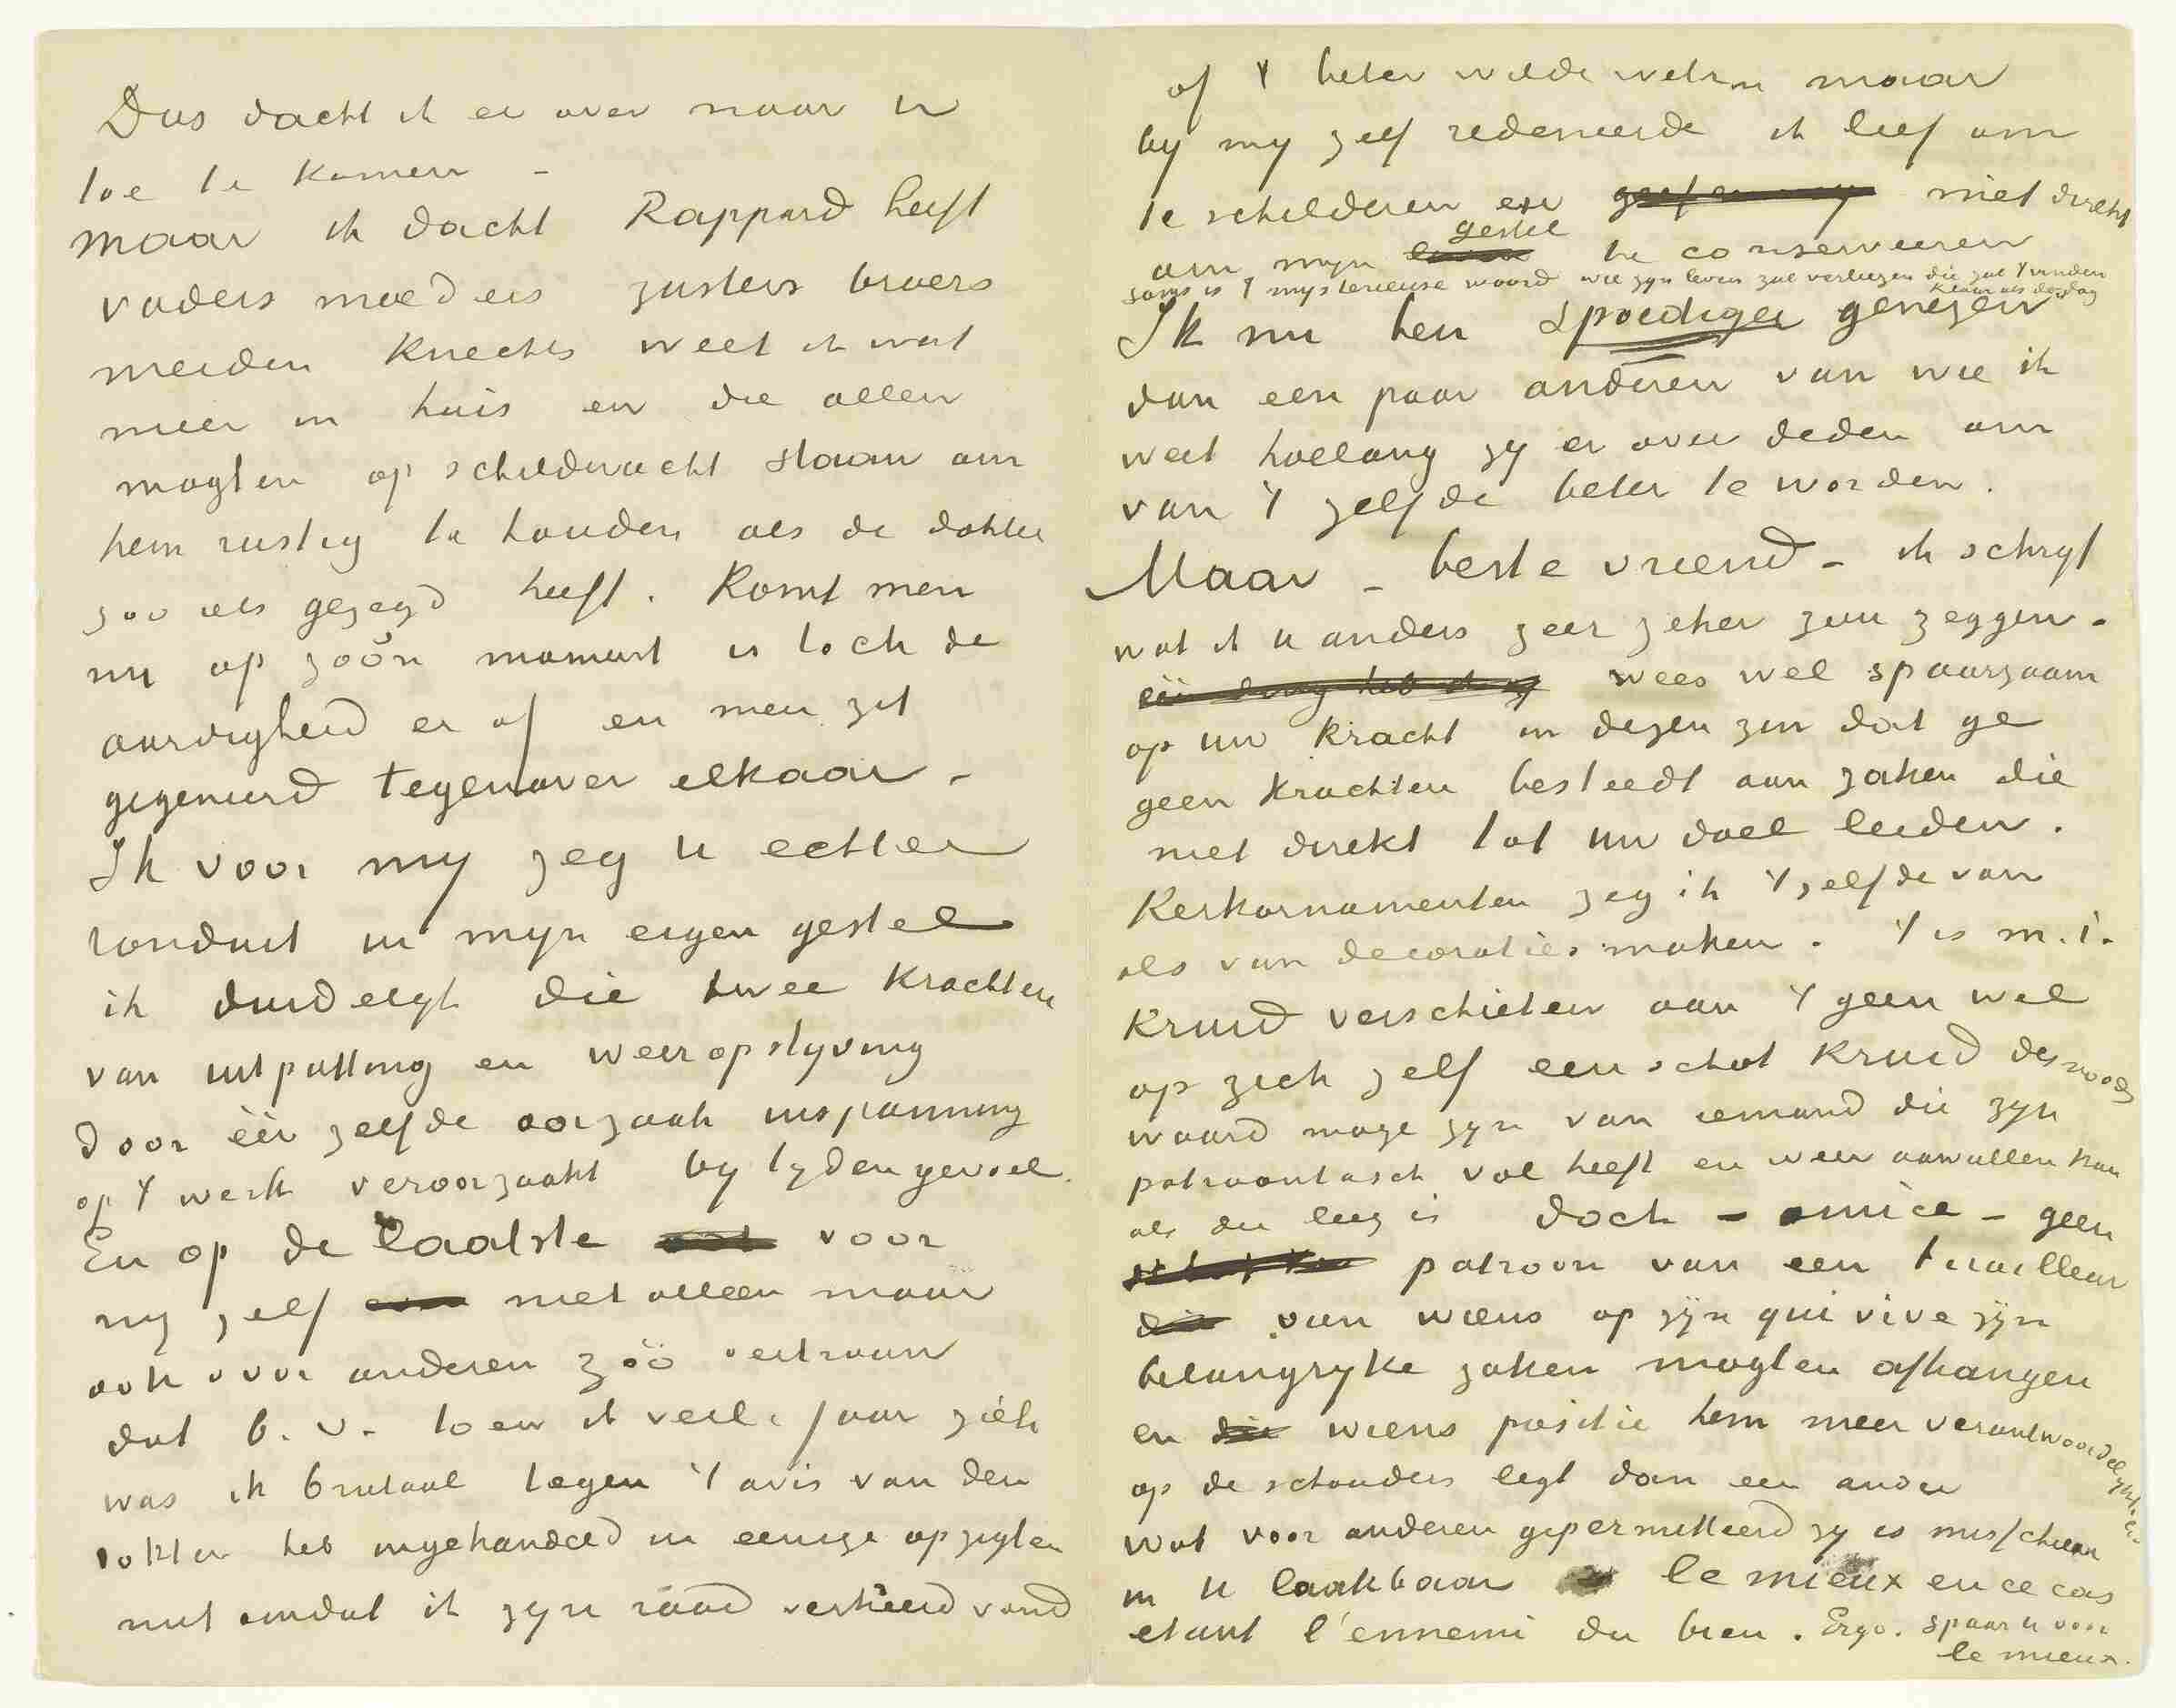 Dus dacht ik er over naar u
toe te komen –
maar ik dacht Rappard heeft
vaders moeders zusters broers
meiden knechts weet ik wat
meer in huis en die allen
mogten op schildwacht staan om
hem rustig te houden als de dokter
zoo iets gezegd heeft. Komt men
nu op zoo'n moment is toch de
aardigheid er af en men zit
gegeneerd tegenover elkaar –
Ik voor mij zeg u echter
ronduit in mijn eigen gestel
ik duidelijk die twee krachten
van uitputting en weeropstyving
door één zelfde oorzaak inspanning
op 't werk veroorzaakt bij tijden gevoel.
En op de laatste voor
mij zelf niet alleen maar
ook voor anderen zóó vertrouw
dat b.v. toen ik verl. jaar ziek
was ik brutaal tegen 't avis van den
dokter heb ingehandeld in eenige opzigten
niet omdat ik zijn raad verkeerd vond
of 't beter wilde weten maar
bij mij zelf redeneerde ik leef om
te schilderen en niet direkt
om mijn gestel te conserveeren
soms is 't mysterieuse woord wie zijn leven zal verliezen die zal 't vinden
klaar als de dag
Ik nu ben spoediger genezen
dan een paar anderen van wie ik
weet hoelang zij er over deden om
van 't zelfde beter te worden.
Maar – beste vriend – ik schrijf
wat ik u anders zeer zeker zou zeggen –
één ding heb ik wees wel spaarzaam
op uw kracht in dezen zin dat ge
geen krachten besteedt aan zaken die
niet direkt tot uw doel leiden.
Kerkornamenten zeg ik 't zelfde van
als van decoraties maken. 't is m.i.
kruid verschieten aan 't geen wel
op zich zelf een schot kruid desnoods
waard moge zijn van iemand die zijn
patroontasch vol heeft en weer aanvullen kan
als die leeg is doch – amice – geen
patroon van een tirailleur
die van wiens op zijn qui vive zijn
belangrijke zaken mogten afhangen
en die wiens positie hem meer verantwoordelijkheid
op de schouders legt dan een ander
wat voor anderen gepermitteerd zij is misschien
in u laakbaar le mieux en ce cas
etant l'ennemi du bien. Ergo. spaar u voor
le mieux.